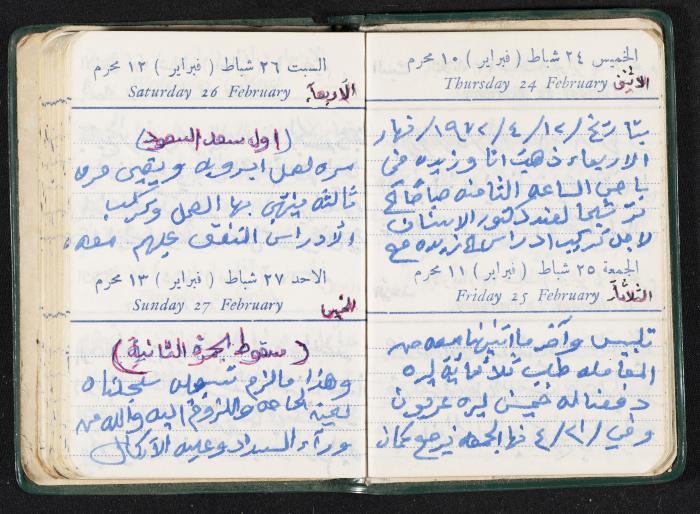 الخميس ٢٤ شباط ( فبراير ) ١٠ محرم
Thursday 24 February
الاثنين
بتاريخ /١٢/ ٤ /١٩٧٢/ نهار
الاربعاء ذهبت انا وزيده في
باص الساعه الثامنه صباحا الى
لعند دكتور الاسنان
لاجل تركيب ادراس الى زيده مع
الجمعة ٢٥ شباط ( فبراير ) ١١ محرم
Friday 25 February
الثلاثاء
تلبيس وآخر ما اتفقنا معه
المعامله طلب ثلاثماية ليره
دفعنا له خمسين ليره عربون
وفي /٢١/ ٤ نهار الجمعه نرجع كمان
السبت ٢٦ شباط ( فبراير ) ١٢ محرم
Saturday 26 February
الأربعاء
( اول سعد السعود )
مره لعمل وبقي مره
ثالثه ينتهي بها العمل وتركيب
الأدراس المتفق عليهم معه
الاحد ٢٧ شباط ( فبراير ) ١٣ محرم
Sunday 27 February
الخميس
( سقوط الجمرة الثانية )
وهذا ما لزم سجلناه
لحين الحاجه واللزوم اليه والله من
ورآء السداد وعليه الاتكال